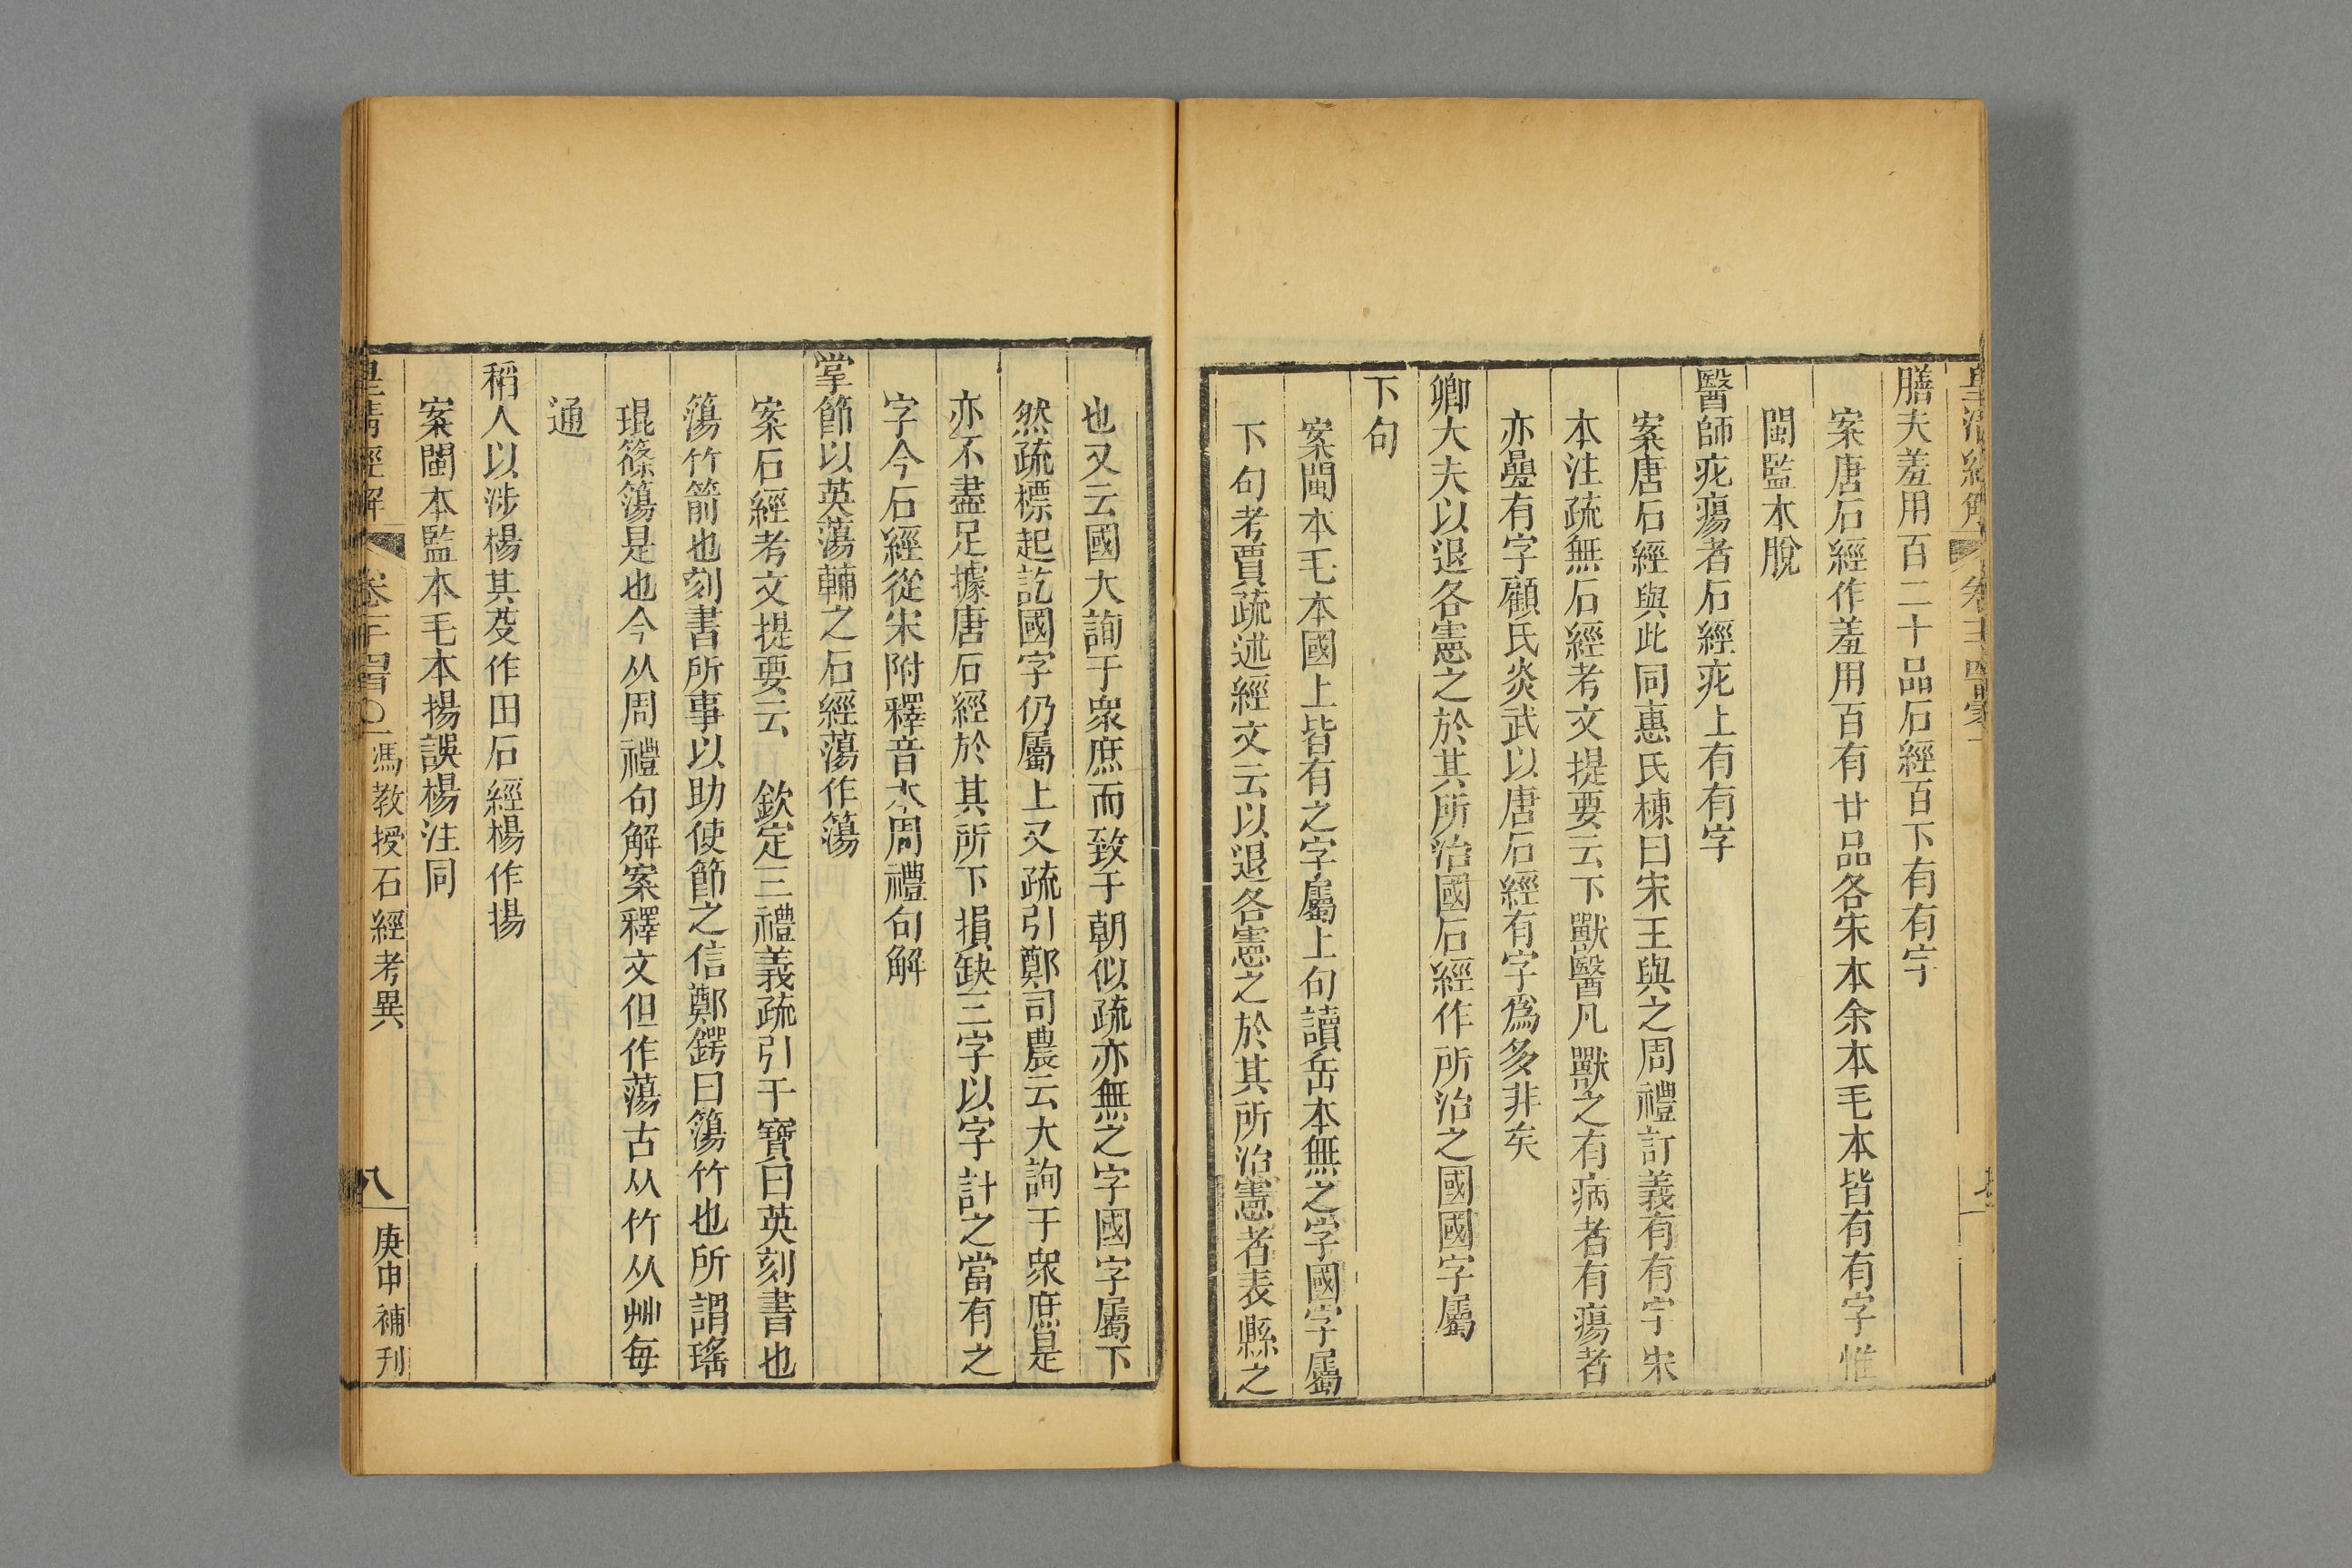 皇清經解
膳夫羞用百二十品石經百下有有字
案唐石經作羞用百有廿品各宋本余本毛本皆有有字惟
閩監本脫
醫師疕瘍者石經疕上有有字
案唐石經與此同惠氏棟曰宋王與之周禮訂義有有字宋
本注疏無石經考文提要云下獸醫凡獸之有病者有瘍者
亦疊有字顧氏炎武以唐石經有字爲多非矣
卿大夫以退各憲之於其所治國石經作所治之國國字屬
下句
案閩本毛本國上皆有之字屬上句讀岳本無之字國字屬
下句考賈疏述經文云以退各憲之於其所治憲者表縣之
也又云國大詢于衆庶而致于朝似疏亦無之字國字屬下
然疏標起訖國字仍屬上又疏引鄭司農云大詢于衆庶是
亦不盡足據唐石經於其所下損缺三字以字計之當有之
字今石經從宋附釋音本周禮句解
掌節以英蕩輔之石經蕩作簜
案石經考文提要云 欽定三禮義疏引干寶曰英刻書也
簜竹箭也刻書所事以助使節之信鄭鍔曰簜竹也所謂瑤
琨篠簜是也今从周禮句解案釋文但作蕩古从竹从艸每
通
稻人以涉楊其芟作田石經楊作揚
案閩本監本毛本揚誤楊注同
皇清經解 馮教授石經考異 八 庚申補刊